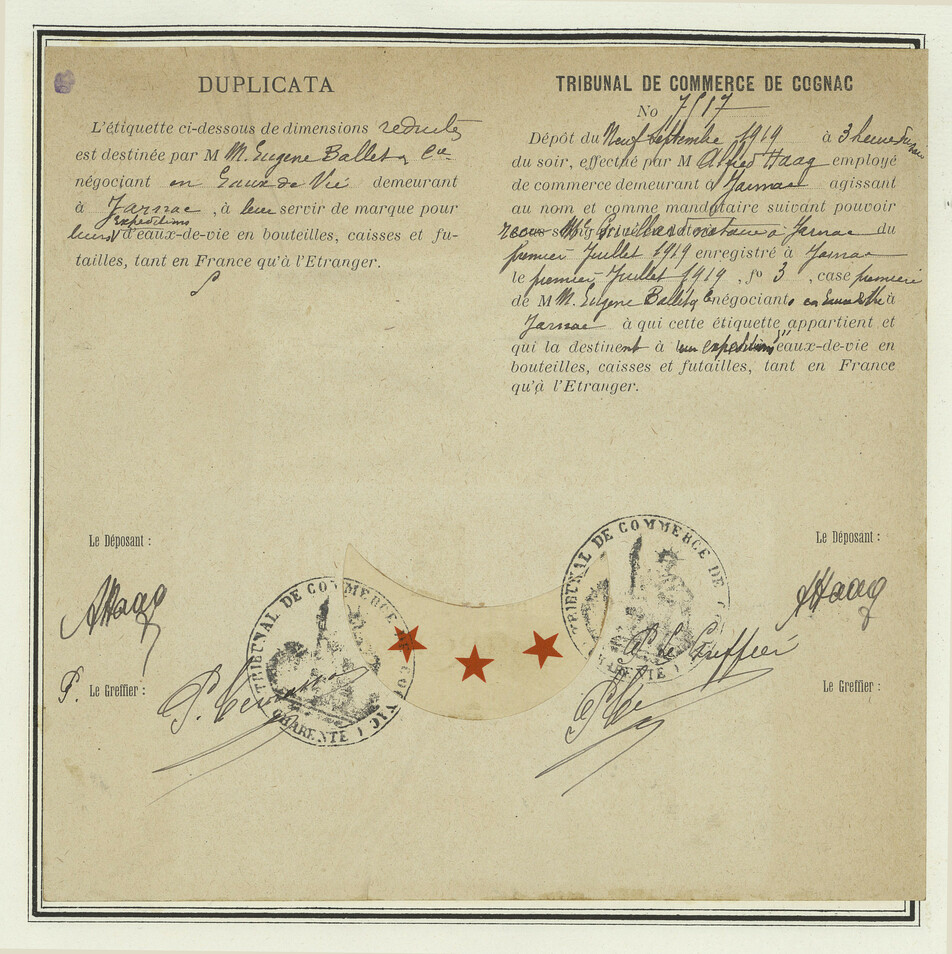 DUPLICATA
L'étiquette ci-dessous de dimensions reduites
est destinée par M M. Eugene Ballet & Cie
négociant en Eaux de Vie demeurant
à Jarnac, à leur servir de marque pour
expeditions
leurs d'eaux-de-vie en bouteilles, caisses et fu-
tailles, tant en France qu'à l'Etranger.
TRIBUNAL DE COMMERCE DE COGNAC
No 7517
Dépôt du Neuf Septembre 1919 à 3 heures
du soir, effectué par M Alfred Haag employé
de commerce demeurant à Jarnac agissant
au nom et comme mandataire suivant pouvoir
notaire à Jarnac du
premier Juillet 1919 enregistré à Jarnac
le premier Juillet 1919, fo 3, case premiere
de M M. Eugene Ballet & négociants en Eaux de Vie à
Jarnac à qui cette étiquette appartient et
qui la destinent à leurs expeditions d'eaux-de-vie en
bouteilles, caisses et futailles, tant en France
qu'à l'Etranger.
Le Déposant :
AHaag
P. Le Greffier :
TRIBUNAL DE COMMERCE DE COGNAC
(CHARENTE)
TRIBUNAL DE COMMERCE DE
CHARENTE
Le Déposant :
AHaag
P. Le Greffier
Le Greffier :